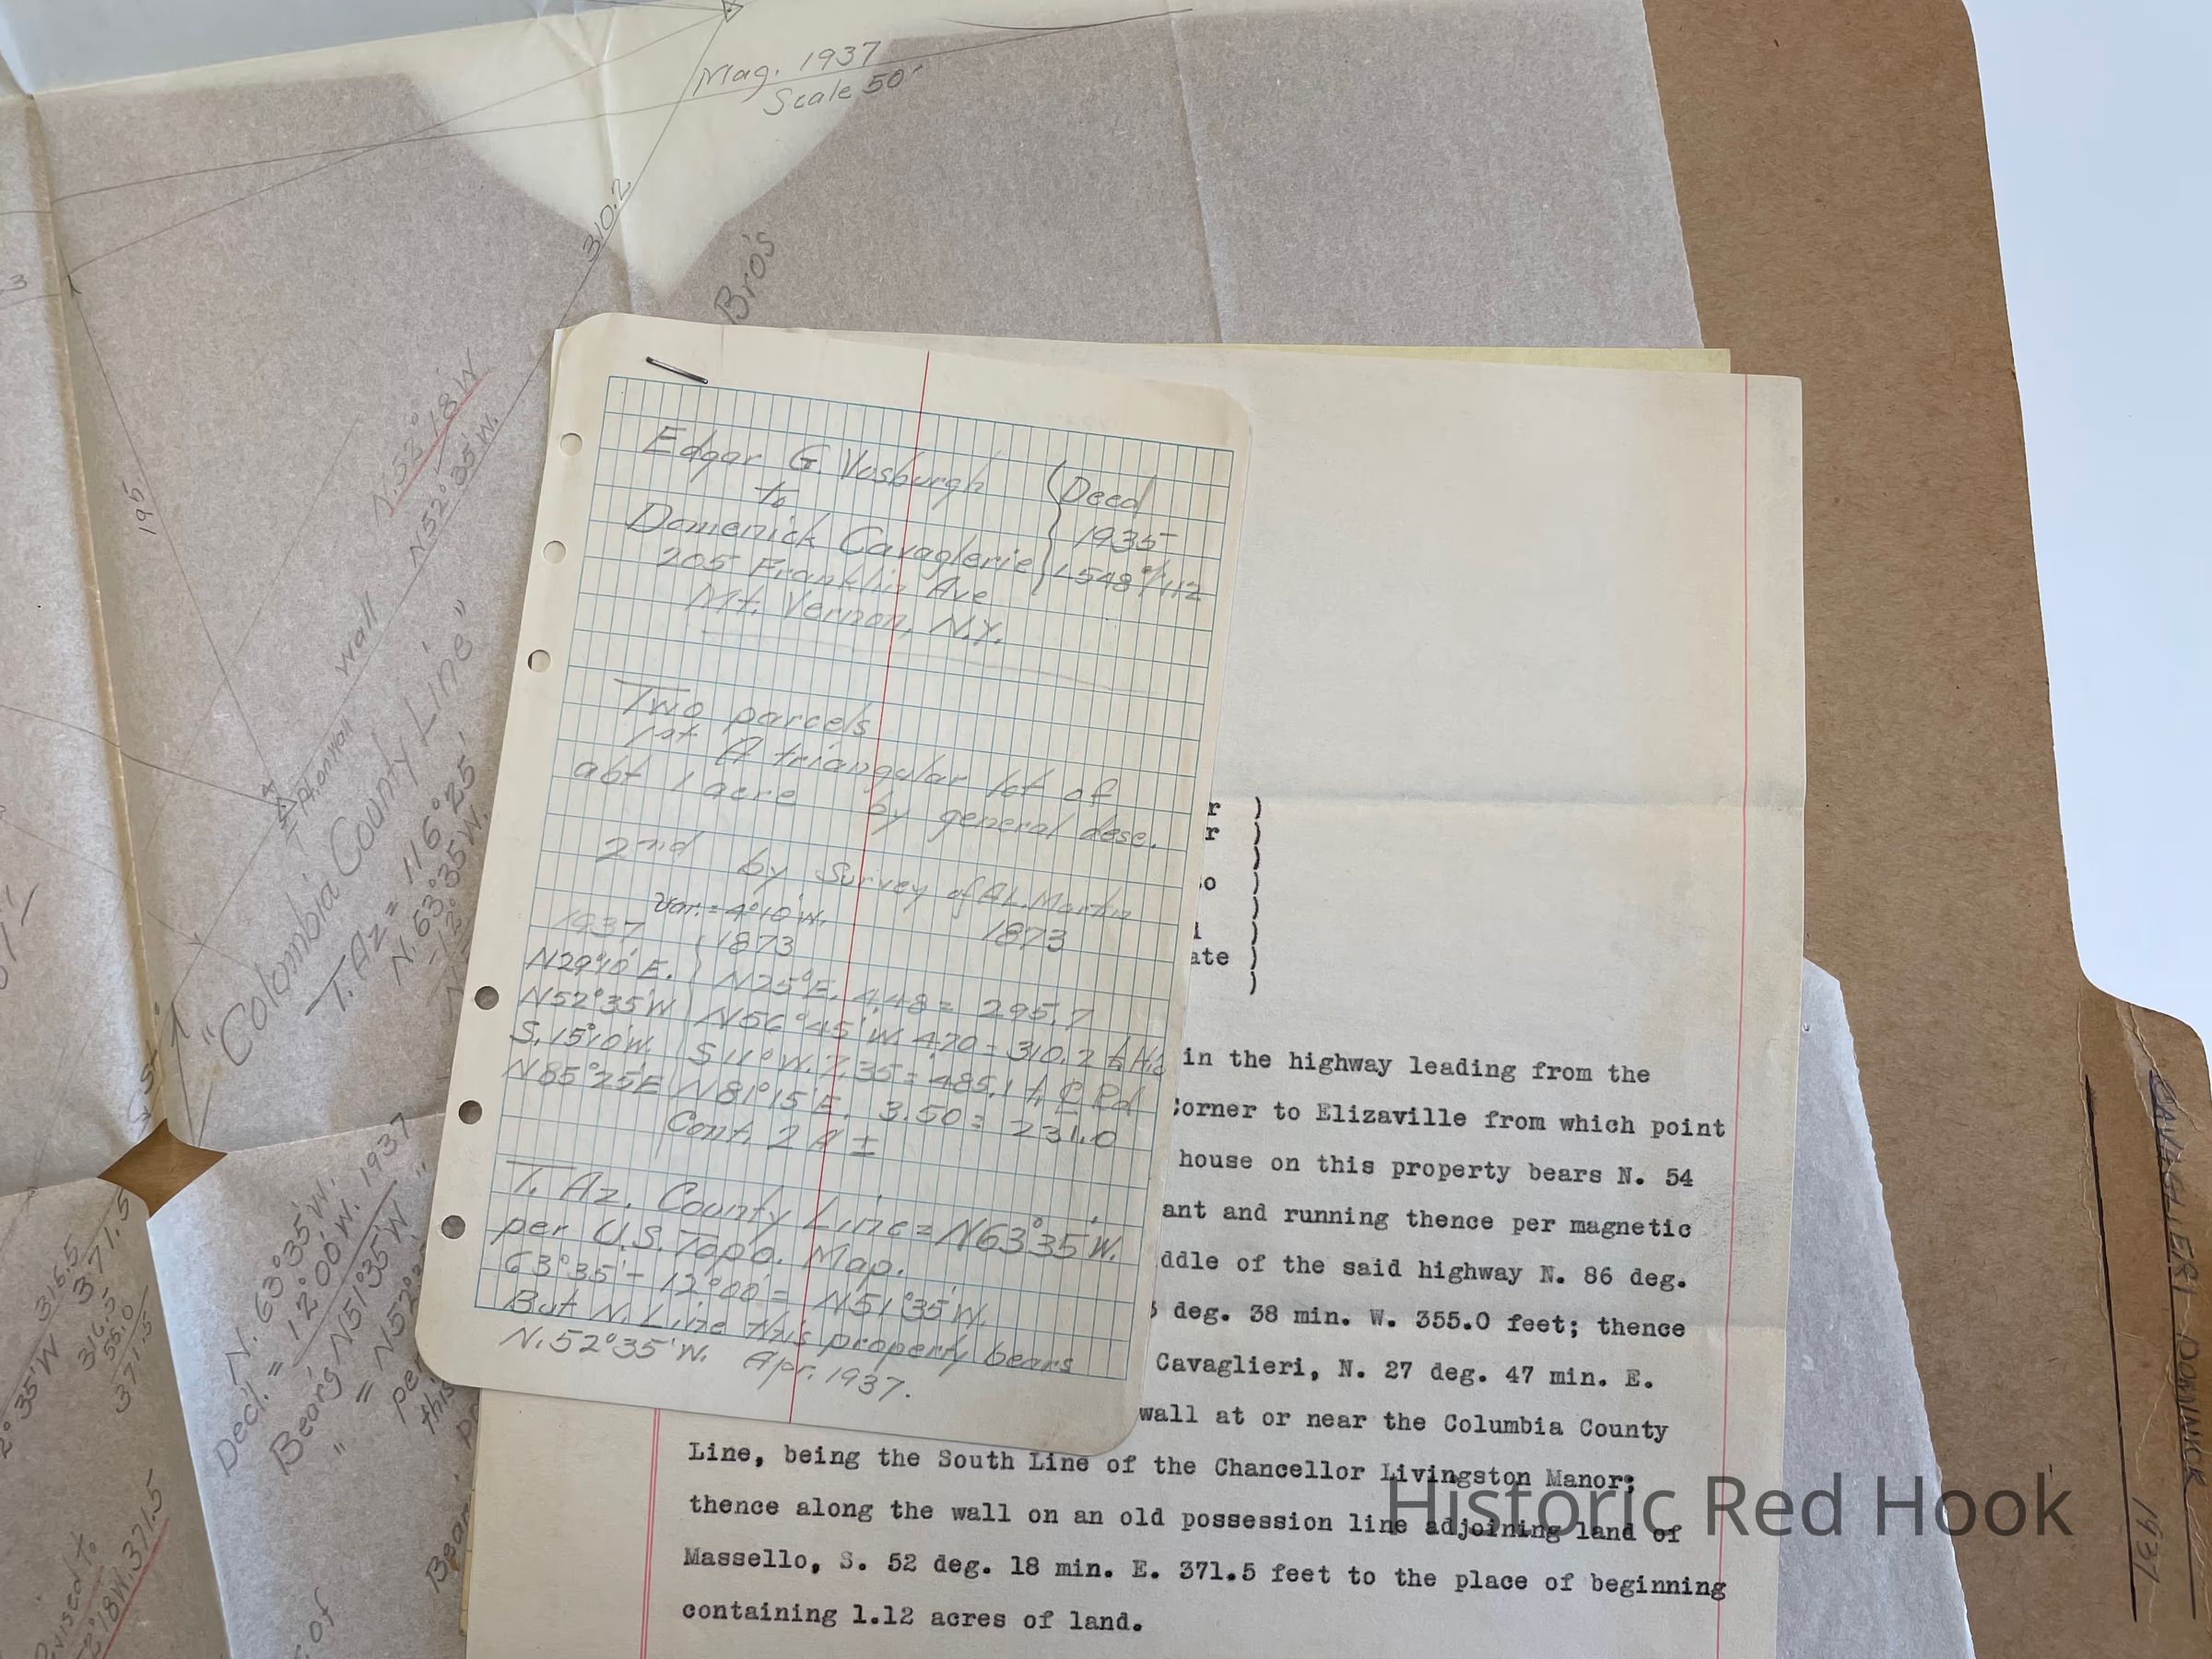 Mag. 1937
Scale 50'
310.2
Bro's
195
N.53°18'W
N52°35'W.
A.Stonwall wall
"Columbia County Line"
T. Az = 116°25'
N.63°35'W.
Decl. = N.63°35'W.
12°00'W. 1937
Bearg N51°35'W
316.5
371.5
316.5
55.0
371.5
371.5
of
Edgar G Vosburgh
to
Domenick Cavaglerie
205 Franklin Ave
Mt. Vernon, N.Y.
Deed
1935
L548 of 112
Two parcels
1st A triangular lot of
abt 1 acre by general desc.
2nd by Survey of A.L. Martin
1873
Var. = 4°10'W.
1937 1873
N29°10'E. N25°E. 4.48 = 295.7
N52°35'W N56°45'W. 4.70 = 310.2
S.15°10'W. S11°W. 7.35 = 485.1 to ℄ Rd
N85°25'E N81°15'E. 3.50 = 231.0
Cont. 2 A ±
T. Az. County Line = N63°35'W.
per U.S. Topo. Map.
63°35' - 12°00' = N51°35'W.
But N. Line this property bears
N.52°35'W. Apr. 1937.
in the highway leading from the
Corner to Elizaville from which point
house on this property bears N. 54
ant and running thence per magnetic
ddle of the said highway N. 86 deg.
deg. 38 min. W. 355.0 feet; thence
Cavaglieri, N. 27 deg. 47 min. E.
wall at or near the Columbia County
Line, being the South Line of the Chancellor Livingston Manor;
thence along the wall on an old possession line adjoining land of
Massello, S. 52 deg. 18 min. E. 371.5 feet to the place of beginning
containing 1.12 acres of land.
CAVAGLIERI - DOMINICK
1931
Historic Red Hook